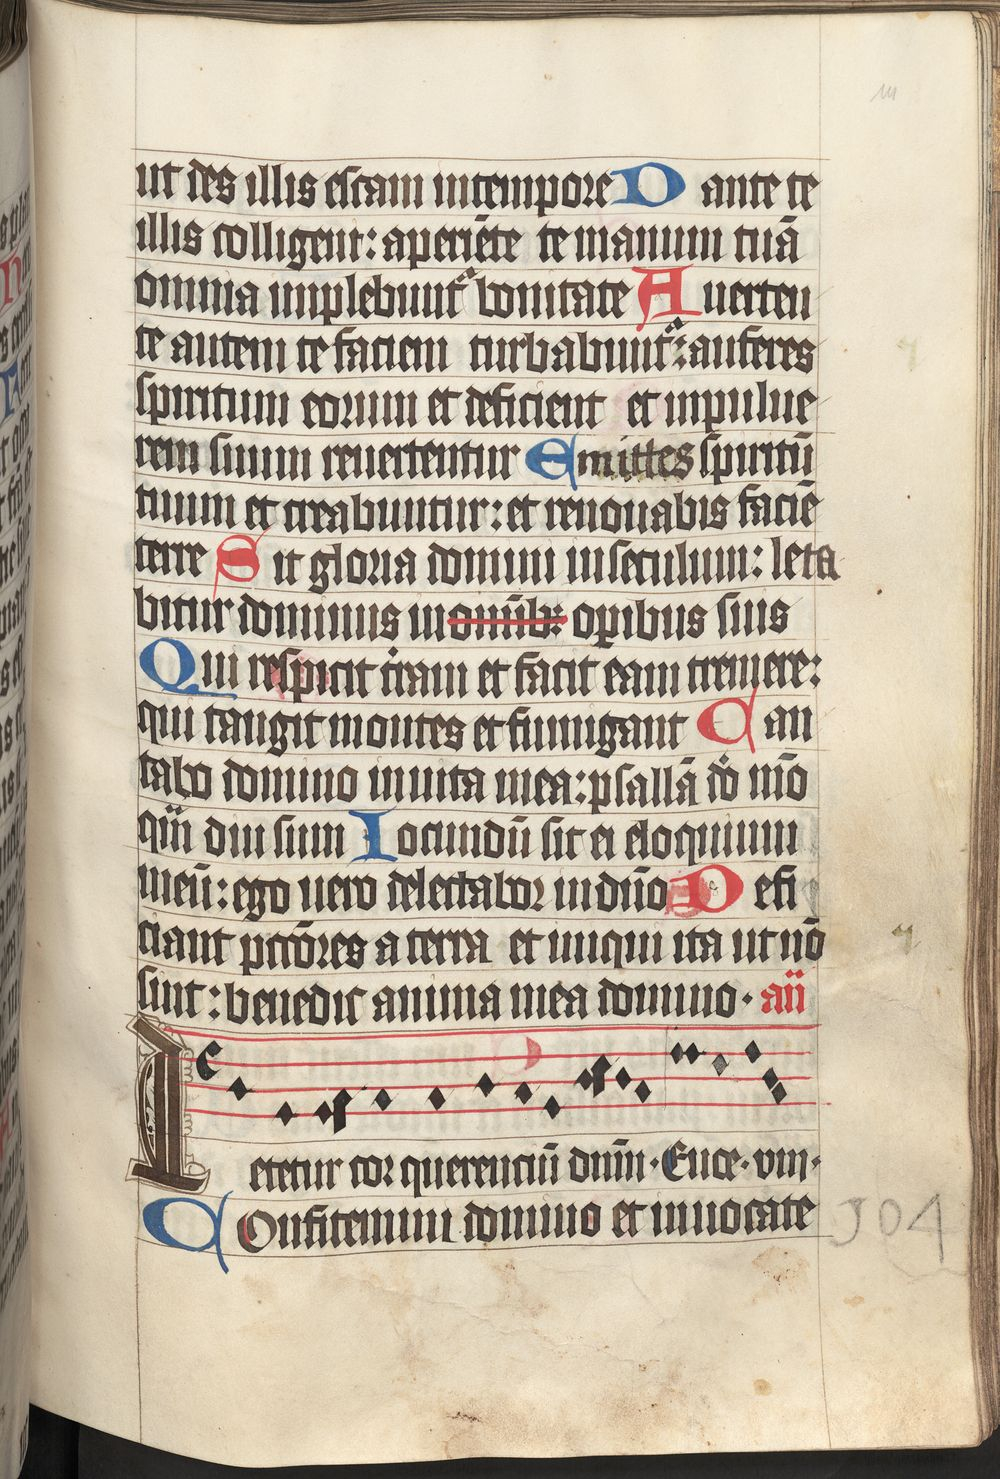 ut des illis escam in tempore D ante te
illis colligent: aperiēte te manum tuā
omnia implebunt᷑ bonitate A uerten
te autem te faciem turbabunt᷑: auferes
spiritum eorum et deficient et in pulue
rem suum reuertentur Emittes spiritū
tuum et creabuntur: et renouabis faciē
terre S it gloria domini in seculum: leta
bitur dominus in omīb: opibus suis
Qui respicit t̄ram et facit eam tremere:
qui tangit montes et fumigant C an
tabo domino in uita mea: psallā dō mō
q̄m diu sum I ocundū sit ei eloquium
meū: ego uero delectabor in dn̄o D efi
ciant pctōres a terra et iniqui ita ut nō
sint: benedic anima mea domino. an̄
L etetur cor querenciū dnm̄. Euoe. viii.
C Onfitemini domino et inuocate
104